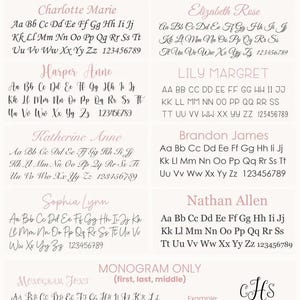 Charlotte Marie
Aa Bb Cc Dd Ee Ff Gg Hh Ii Jj
Kk Ll Mm Nn Oo Pp Qq Rr Ss Tt
Uu Vv Ww Xx Yy Zz 123456789
Elizabeth Rose
Aa Bb Cc Dd Ee Ff Gg Hh Ii Jj
Kk Ll Mm Nn Oo Pp Qq Rr Ss Tt
Uu Vv Ww Xx Yy Zz 123456789
Harper Anne
Aa Bb Cc Dd Ee Ff Gg Hh Ii Jj
Kk Ll Mm Nn Oo Pp Qq Rr Ss Tt
Uu Vv Ww Xx Yy Zz 123456789
LILY MARGRET
AA BB CC DD EE FF GG HH II JJ
KK LL MM NN OO PP QQ RR SS
TT UU VV WW XX YY ZZ 123456789
Katherine Anne
Aa Bb Cc Dd Ee Ff Gg Hh Ii Jj
Kk Ll Mm Nn Oo Pp Qq Rr Ss Tt
Uu Vv Ww Xx Yy Zz 123456789
Brandon James
Aa Bb Cc Dd Ee Ff Gg Hh Ii Jj
Kk Ll Mm Nn Oo Pp Qq Rr Ss Tt
Uu Vv Ww Xx Yy Zz 123456789
Sophia Lynn
Aa Bb Cc Dd Ee Ff Gg Hh Ii Jj Kk
Ll Mm Nn Oo Pp Qq Rr Ss Tt Uu Vv
Ww Xx Yy Zz 123456789
Nathan Allen
Aa Bb Cc Dd Ee Ff Gg Hh Ii Jj
Kk Ll Mm Nn Oo Pp Qq Rr Ss
Tt Uu Vv Ww Xx Yy Zz 123456789
MONOGRAM ONLY
(first, last, middle)
Monogram Font
Example:
CHS